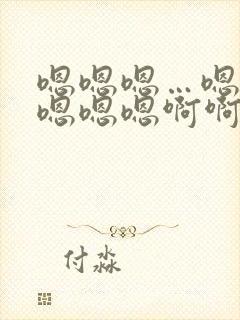 嗯嗯嗯…嗯
嗯嗯嗯啊啊
付淼